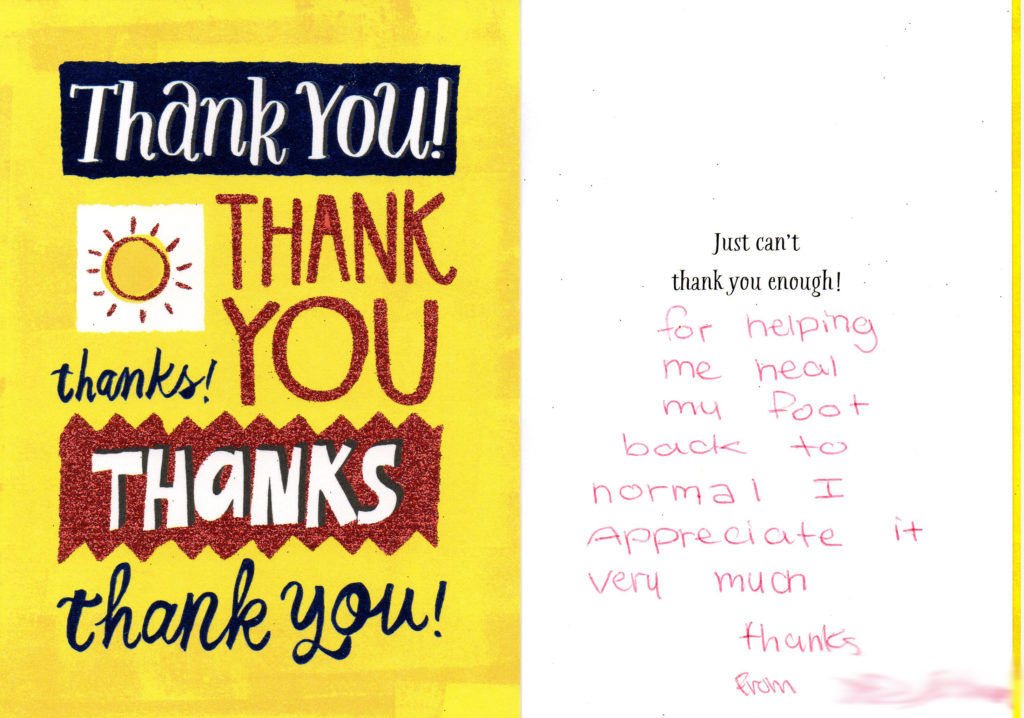 Thank You!
THANK
YOU
thanks!
THANKS
thank you!
Just can't
thank you enough!
for helping
me heal
my foot
back to
normal I
Appreciate it
very much
thanks
from